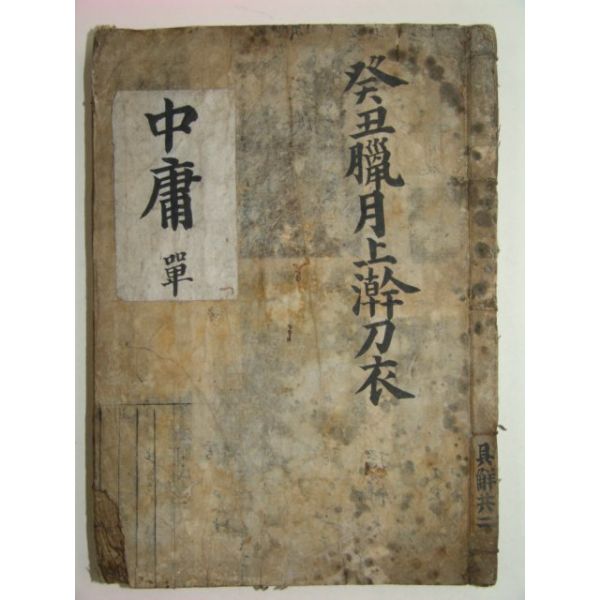 癸丑臘月上澣刀衣
中庸
單
具觧共二